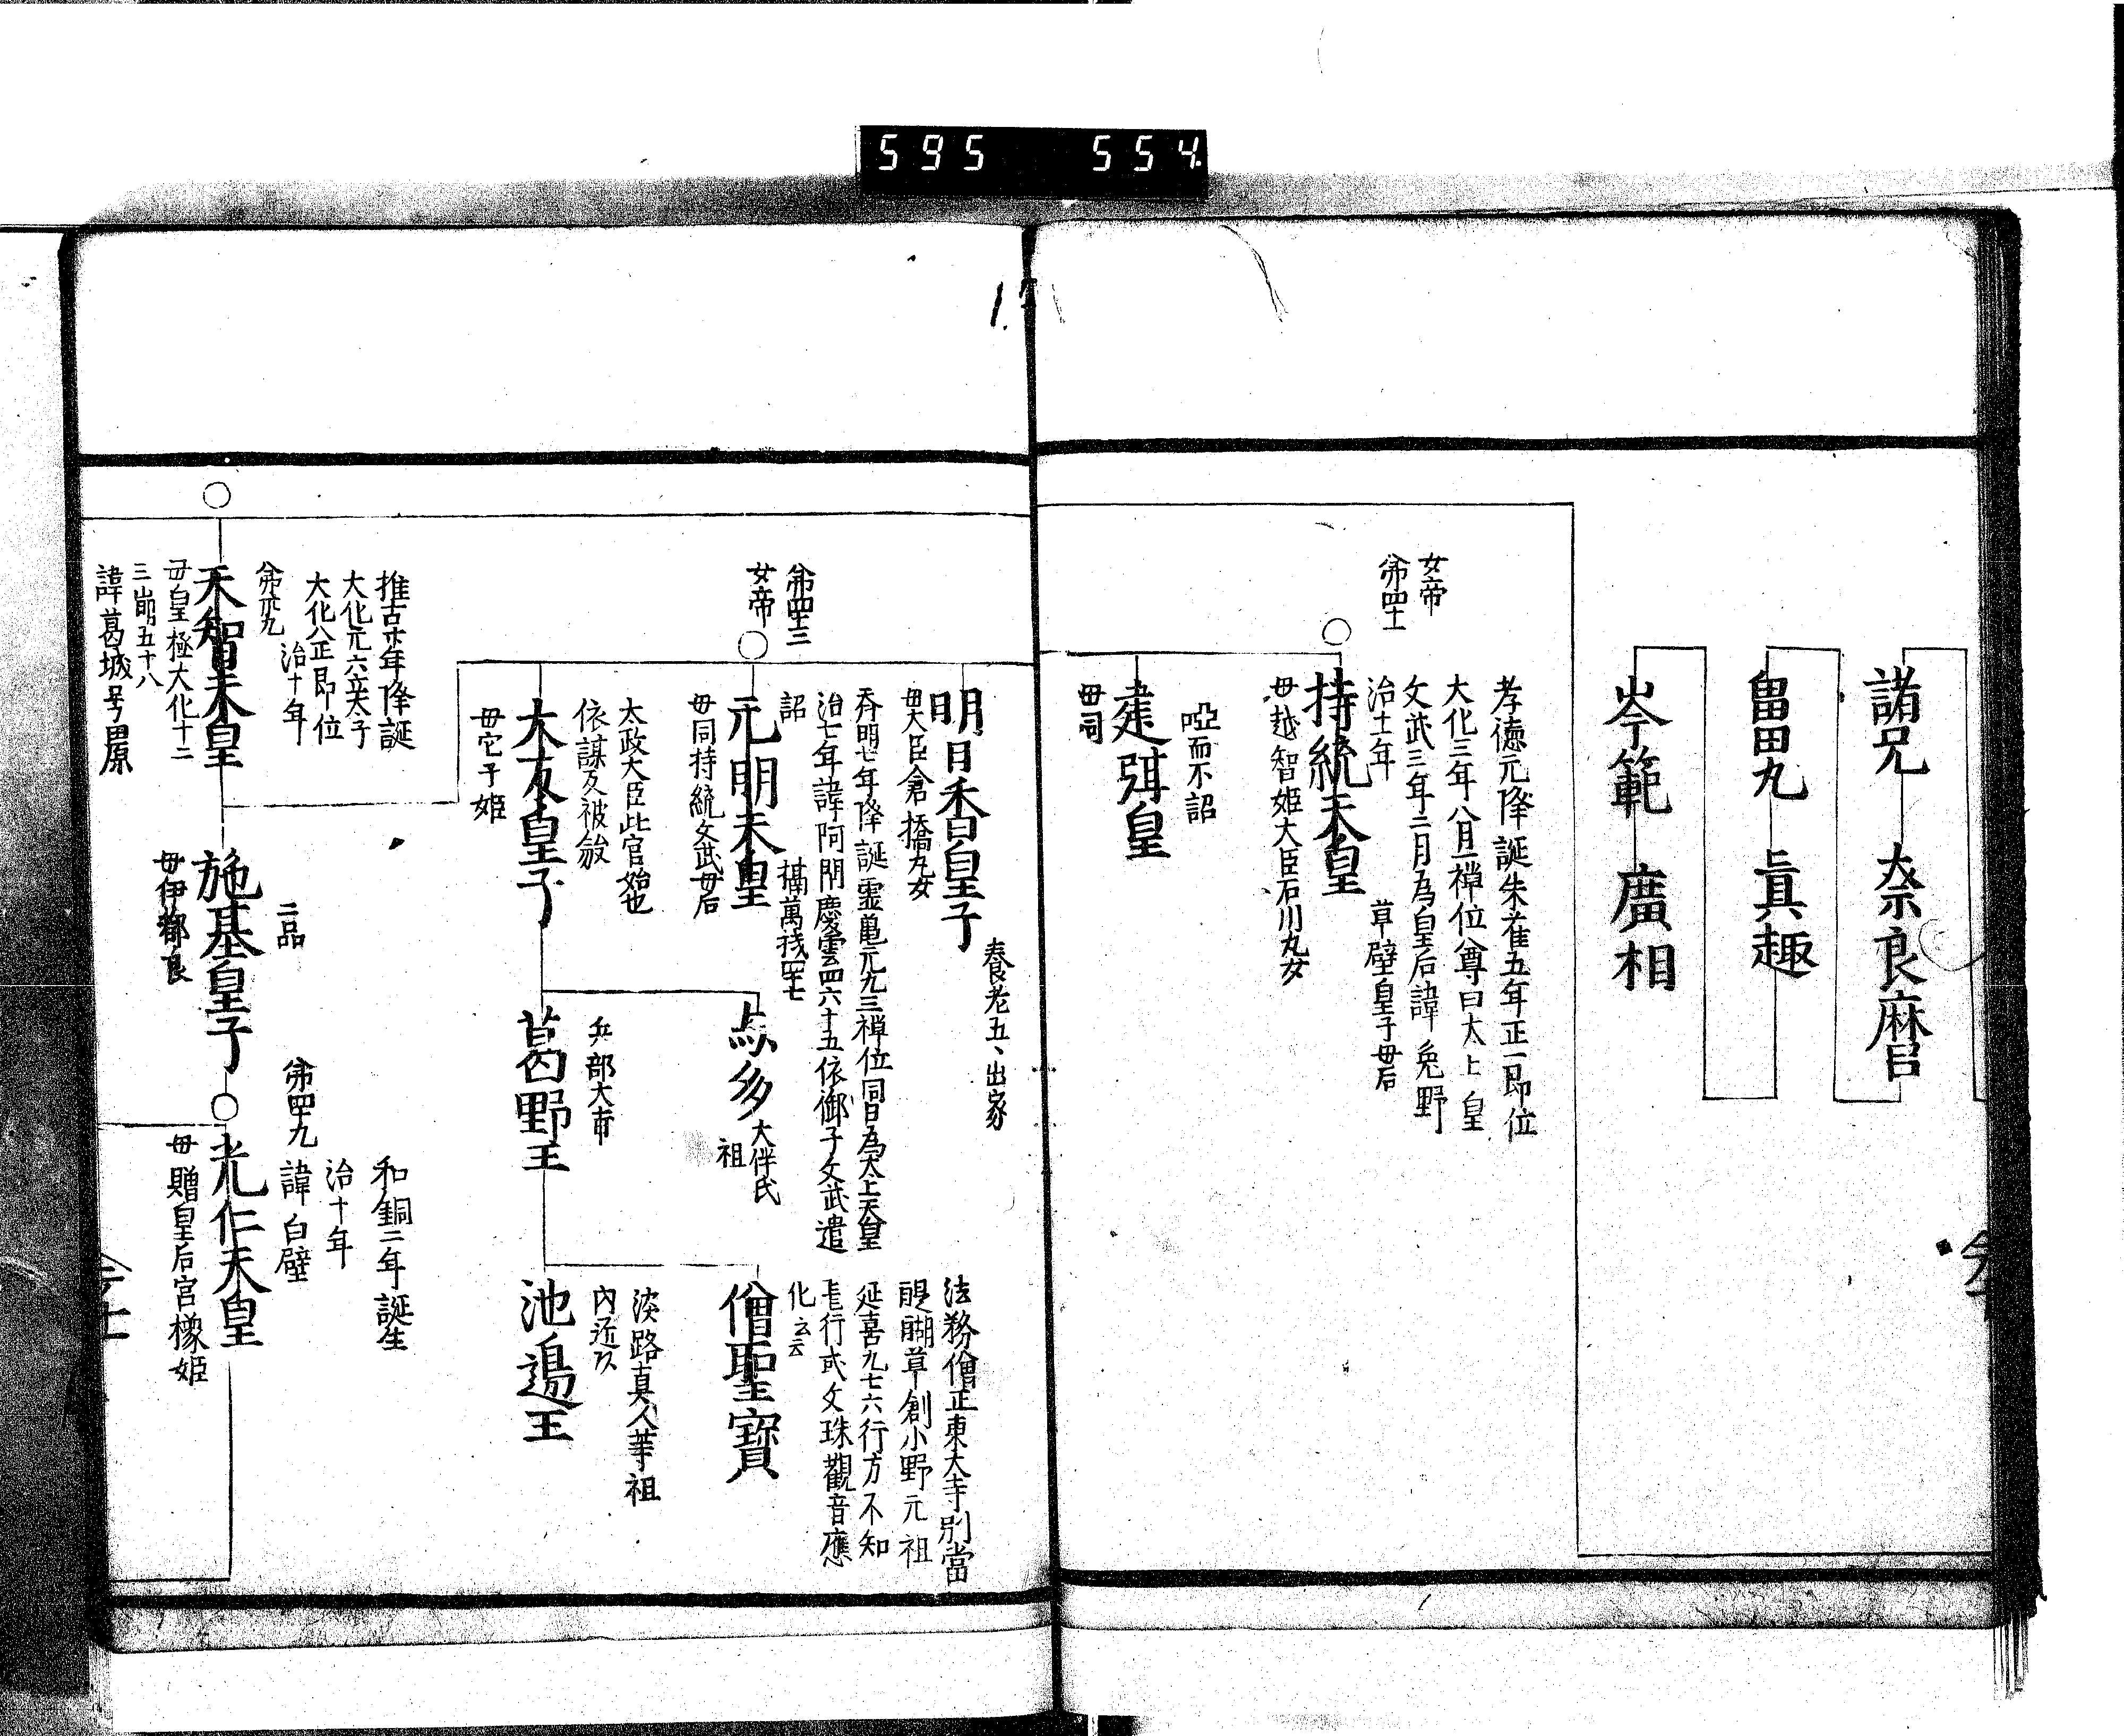 595 554
諸兄
奈良麿
畠田丸
眞趣
岑範
廣相
孝徳元降誕朱雀五年正一即位
大化三年八月一禅位尊曰太上皇
文武三年二月為皇后諱兎野
治十一年
草壁皇子母后
女帝
第四十一
持統天皇
母越智姫大臣石川丸女
啞而不詔
建珥皇
母同
養老五丶出家
明日香皇子
母大臣倉橋丸女
斉明廿年降誕霊亀元九三禅位同日為太上天皇
治七年諱阿閇慶雲四六十五依御子文武遺
詔
第四十三
女帝
元明天皇
母同持統文武母后
太政大臣此官始也
依謀反被敘
大友皇子
母宅子姫
大伴氏
祖
兵部大甫
葛野王
法務僧正東大寺別當
醍醐草創小野元祖
延喜九七六行方不知
行或文珠觀音應
化云云
僧聖寶
淡路真人等祖
内近
池邉王
推古廿年降誕
大化元六立太子
大化八正即位
治十年
第卅九
天智天皇
母皇極大化十二
三崩五十八
諱葛城号田原
二品
施基皇子
母伊郷良
和銅二年誕生
治十年
第四十九
諱白壁
光仁天皇
母贈皇后宮橡姫